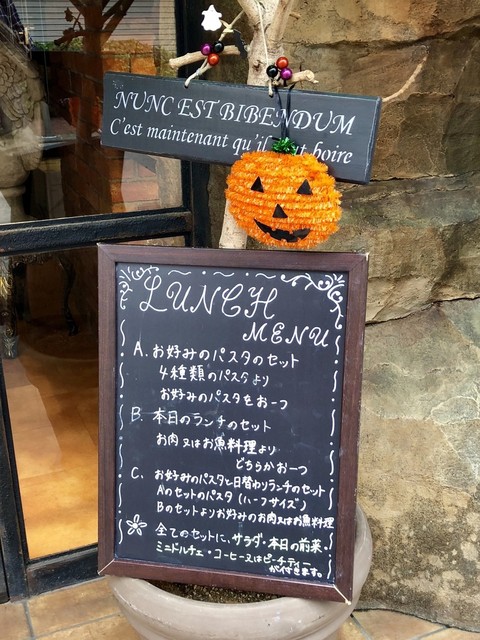 NUNC EST BIBENDUM
C'est maintenant qu'il boire
LUNCH
MENU
A. お好みのパスタのセット
4種類のパスタより
お好みのパスタをお一つ
B. 本日のランチのセット
お肉又はお魚料理より
どちらかお一つ
C. お好みのパスタと日替わりランチのセット
Aのセットのパスタ(ハーフサイズ)
Bのセットよりお好みのお肉又はお魚料理
全てのセットに、サラダ・本日の前菜
ミニドルチェ・コーヒー又はピーチティー
が付きます。